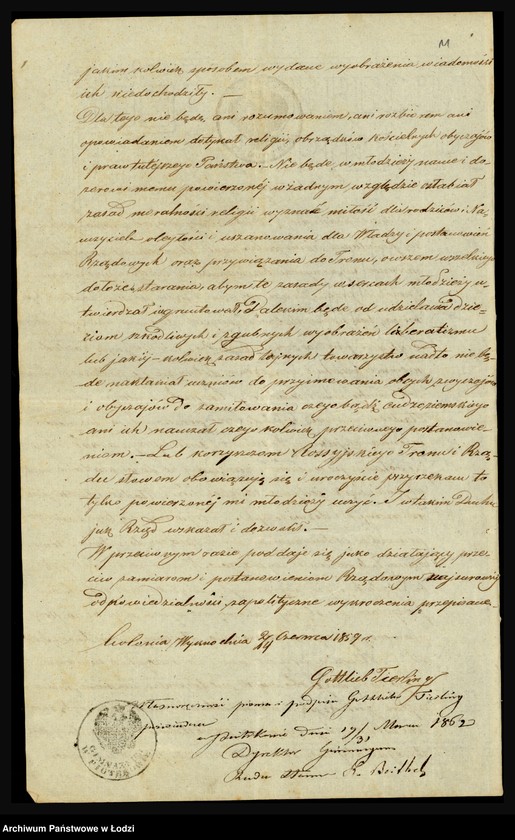 11
jakim kolwiek sposobem wydane wyobrażenia wiadomości
ich niedochodziły. —
Dla tego nie będę ani rozumowaniem, ani rozbiorem ani
opowiadaniem dotykał religii, obrządków kościelnych obyczajów
i praw tutejszego Państwa. – Nie będę, w młodzieży nauce i do
zorowi memu powierzonéj w żadnym względzie osłabiał
zasad moralności religii wyznań miłości dla rodziców i Na
uczyciela uległości i uszanowania dla Władzy i postanowień
Rządowych oraz przywiązania do Tronu, owszem wszelkiego
dołożę starania, abym te zasady w sercach młodzieży u
twierdzał i ugruntował. Dalekim będę od udzielania dzie-
ciom szkodliwych i zgubnych wyobrażeń liberalizmu
lub jakiej-kolwiek zasad tajnych towarzystw nadto nie bę
dę nakłaniał uczniów do przyjmowania obcych zwyczajów
i obyczajów do zamiłowania czego bądź cudzoziemskiego
ani ich nauczał czego kolwiek przeciwnego postanowie-
niom. – Lub korzyściom Rossyjskiego Tronu i Rzą-
du słowem obowiązuję się i uroczyście przyrzekam to
tylko powierzonéj mi młodzieży uczyć. I w takim Duchu
jak Rząd wskazał i dozwolił. —
W przeciwnym razie poddaję się jako działający prze-
ciw zamiarom i postanowieniom Rządowym najsurowszej
odpowiedzialności, za polityczne wykroczenia przepisane –
Kolonia dnia Czerwca 1859 r.
Gottlieb Fierling
Własnoręczność pisma i podpisu Gottlieba Fierling
poświadcza
w Piotrkowie dnia 19/31 Marca 1862
Dyrektor Gimnazyum
Radca Stanu
GIMNAZ
W PIOTRK
Archiwum Państwowe w Łodzi